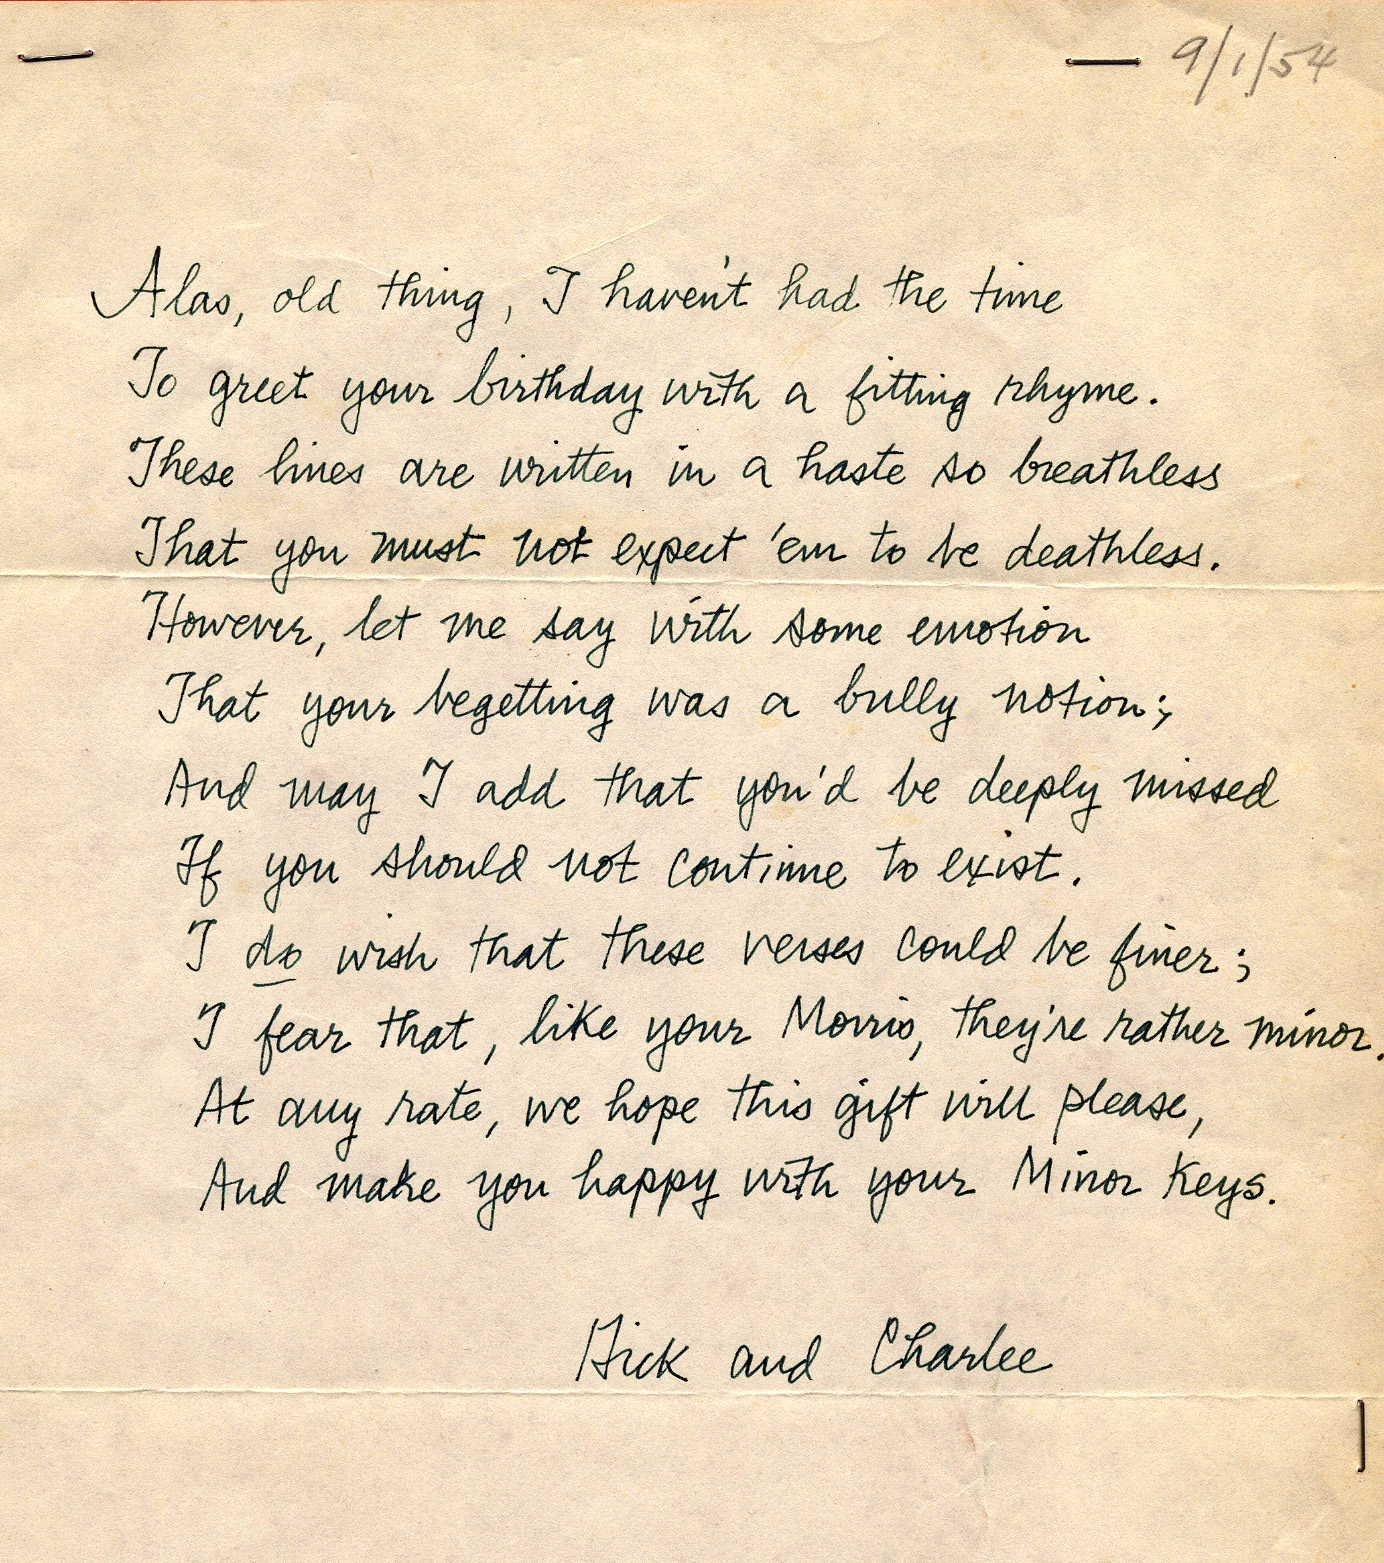 9/1/54
Alas, old thing, I haven't had the time
To greet your birthday with a fitting rhyme.
These lines are written in a haste so breathless
That you must not expect 'em to be deathless.
However, let me say with some emotion
That your begetting was a bully notion;
And may I add that you'd be deeply missed
If you should not continue to exist.
I do wish that these verses could be finer;
I fear that, like your Morris, they're rather minor.
At any rate, we hope this gift will please,
And make you happy with your Minor Keys.
Hick and Charlee